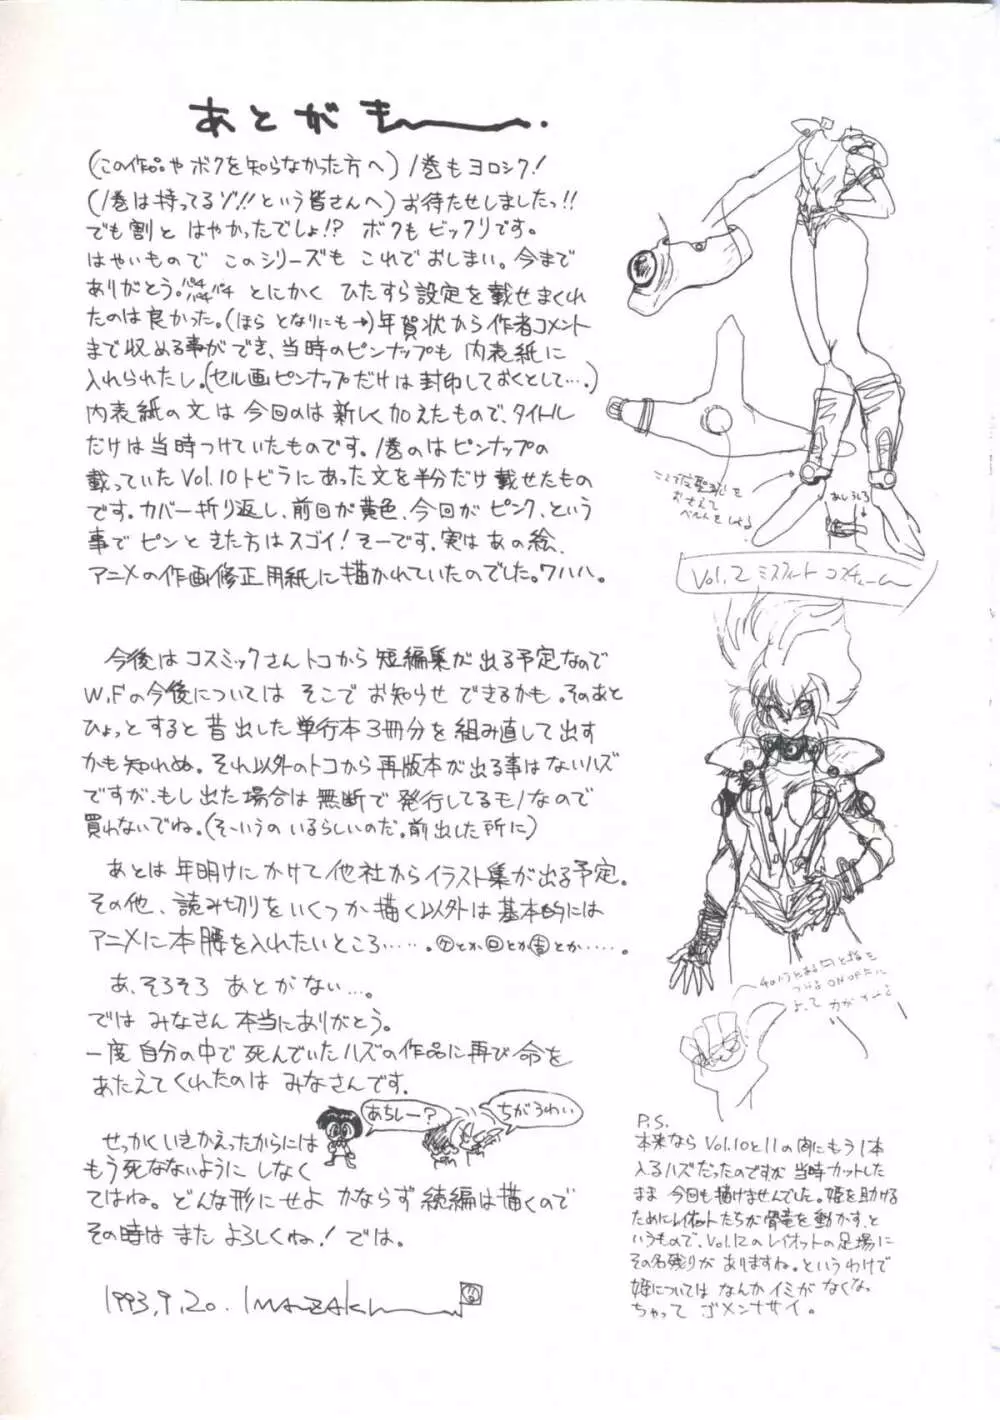 あとがき
(この作品や ボクを知らなかった方へ) 1巻もヨロシク!
(1巻は持ってるゾ!!という皆さんへ) お待たせしましたっ!!
でも割と はやかったでしょ!? ボクも ビックリです。
はやいもので このシリーズも これで おしまい。今まで
ありがとう。パチパチパチ とにかく ひたすら設定を載せまくれ
たのは良かった。(ほら となりにも→)年賀状から作者コメント
まで収める事ができ、当時のピンナップも 内表紙に
入れられたし。(セル画ピンナップだけは封印しておくとして…。)
内表紙の文は今回のは新しく加えたもので、タイトル
だけは当時つけていたものです。1巻のはピンナップの
載っていたVol.10トビラにあった文を半分だけ載せたもの
です。カバー折り返し、前回が黄色、今回がピンク、という
事でピンときた方はスゴイ! そーです、実はあの絵、
アニメの作画修正用紙に描かれていたのでした。ワハハ。
今後はコスミックさんトコから 短編集が出る予定なので
W.Fの今後については そこで お知らせ できるかも。そのあと
ひょっとすると昔出した単行本3冊分を組み直して出す
かも知れぬ。それ以外のトコから再版本が出る事はないハズ
ですが、もし出た場合は無断で発行してるモノなので
買わないでね。(そーいうのいるらしいのだ。前出した所に)
あとは年明けにかけて他社からイラスト集が出る予定。
その他、読み切りをいくつか描く以外は基本的には
アニメに本腰を入れたいところ……。㋘とか㊀とか㊁とか……。
あ、そろそろ あとがない…。
では みなさん本当にありがとう。
一度自分の中で死んでいたハズの作品に再び命を
あたえてくれたのは みなさんです。
あちしー?
ちがうわい
せっかくいきかえったからには
もう死なないように しなく
てはね。どんな形にせよ かならず続編は描くので
その時は また よろしくね! では。
1993.9.20. IMAZAKI
Vol.2 ミスフィート コスチューム
P.S.
本来なら Vol.10と11の間にもう1本
入るハズだったのですが 当時カットした
まま 今回も描けませんでした。姫を助ける
ためにレイオットたちが骨竜を動かす、と
いうもので、Vol.12のレイオットの足場に
その名残りが ありますね。というわけで
姫については なんかイミが なくなっ
ちゃって ゴメンナサイ。